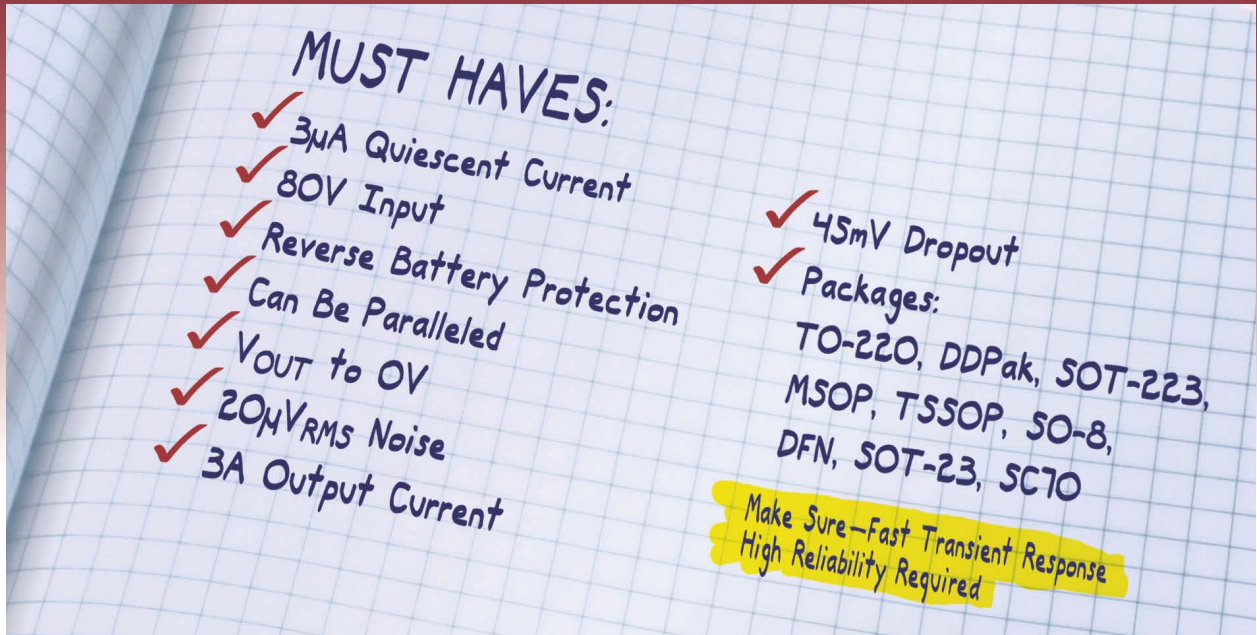 MUST HAVES:
3µA Quiescent Current
80V Input
Reverse Battery Protection
Can Be Paralleled
VOUT to 0V
20µVRMS Noise
3A Output Current
45mV Dropout
Packages:
TO-220, DDPak, SOT-223,
MSOP, TSSOP, SO-8,
DFN, SOT-23, SC70
Make Sure—Fast Transient Response
High Reliability Required